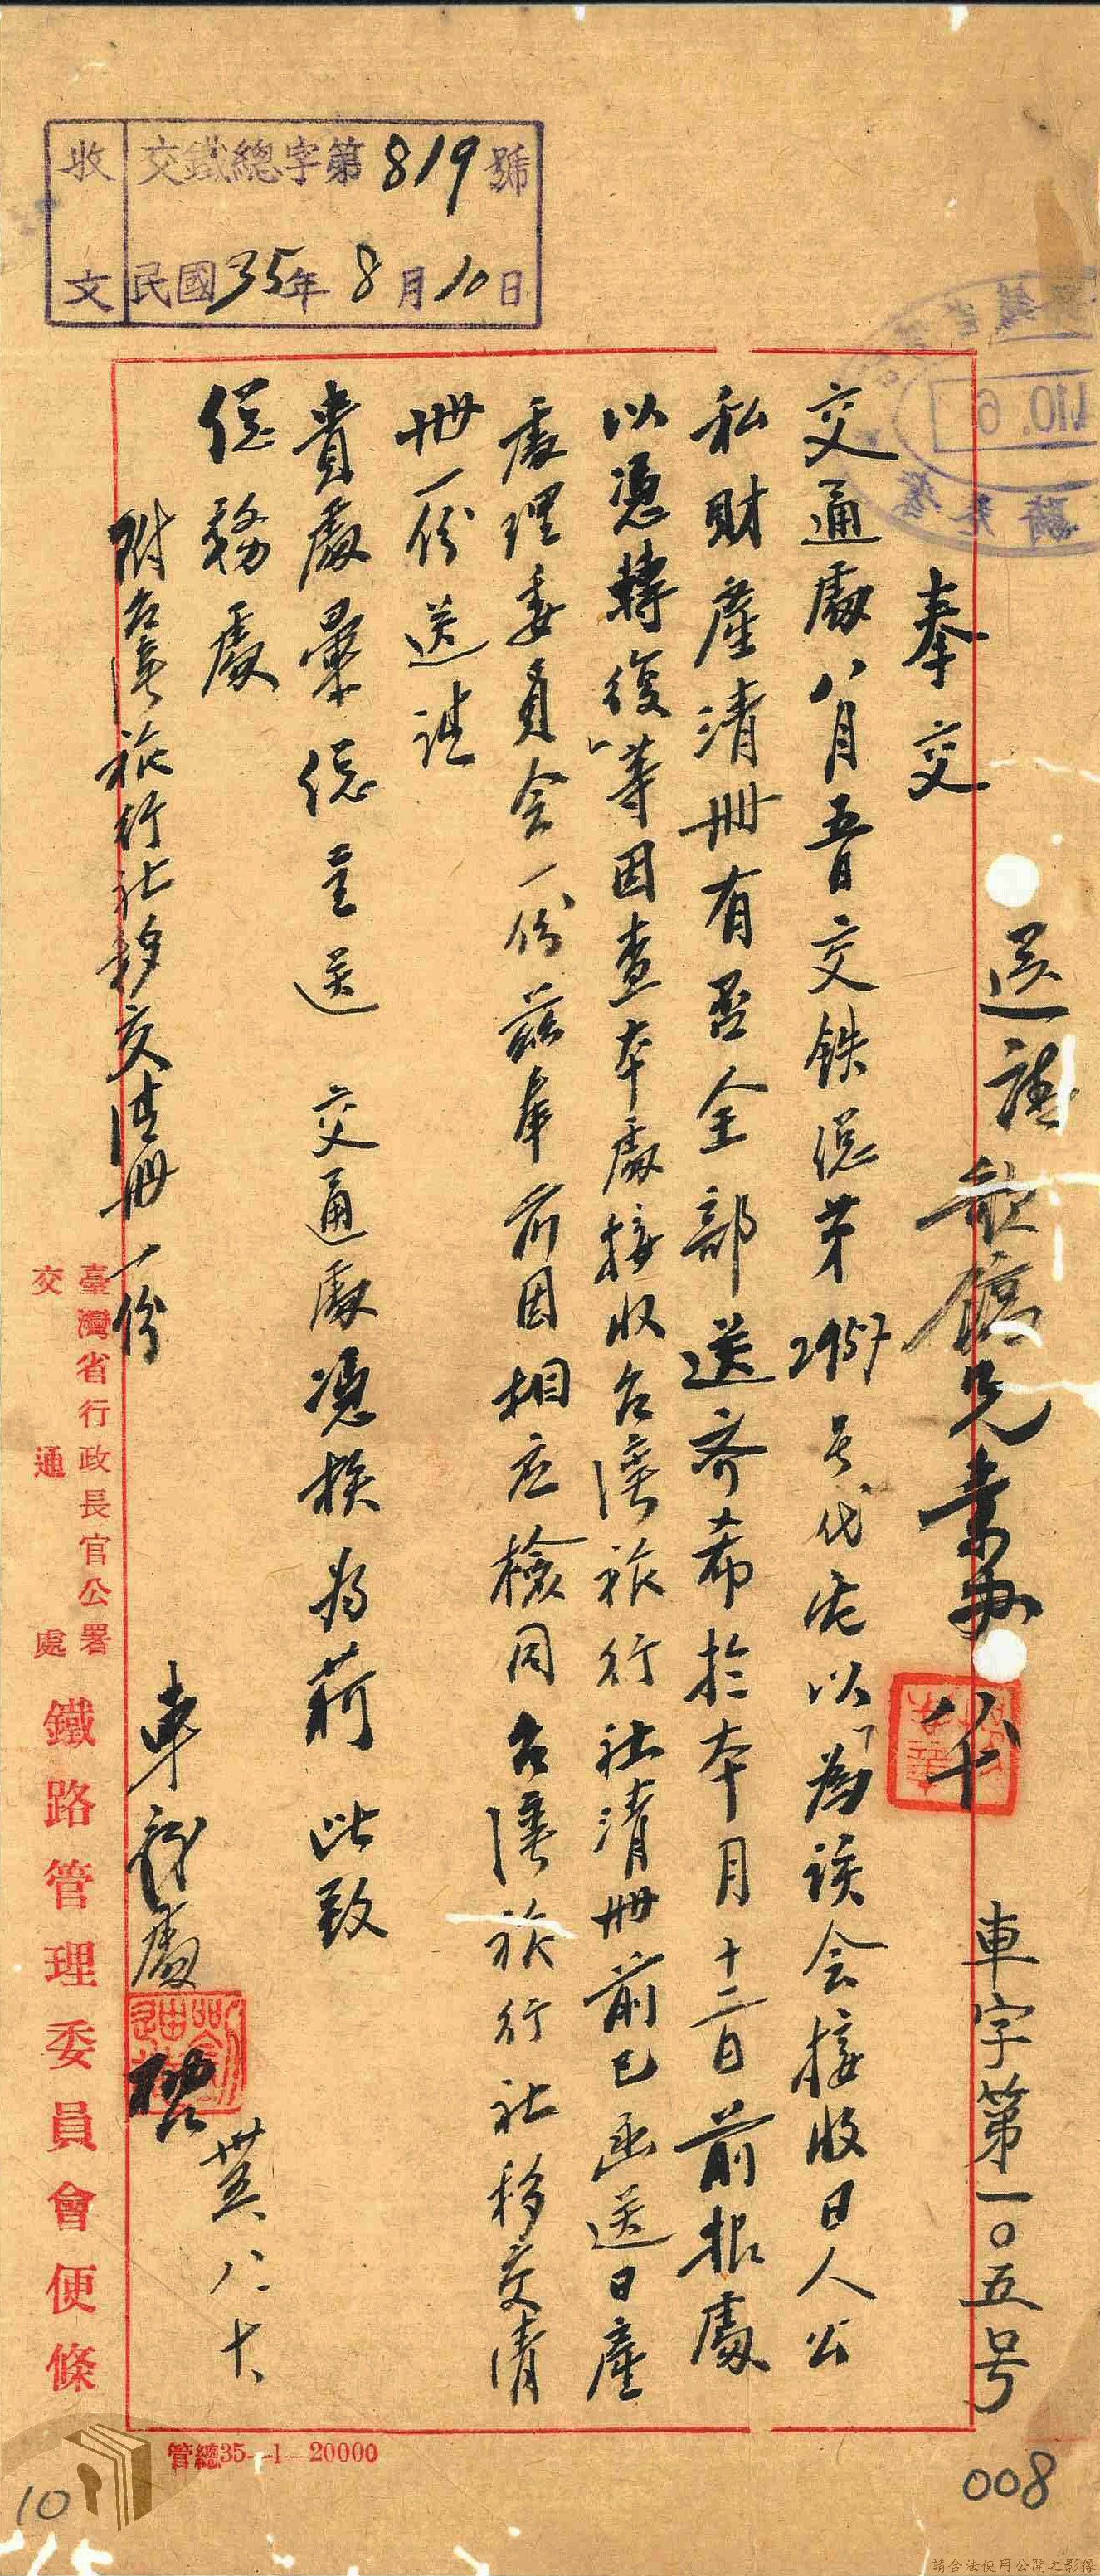 收文
交鐵總字第819號
民國35年8月10日
車字第一〇五号
奉交
交通處八月五日交铁總第2957号代電以「為该会接收日人公
私財產清册有否全部送齐希於本月十二日前报處
以憑轉復」等因查本處接收台湾旅行社清册前已函送日產
處理委員会一份兹奉前因相应檢同台湾旅行社移交清
册一份送请
貴處彙總呈送 交通處憑核为荷 此致
總務處
附台湾旅行社移交清册一份
車務處
卅五、八、十、
臺灣省行政長官公署
交通處
鐵路管理委員會便條
管總35—1—20000
008
10
請合法使用公開之影像